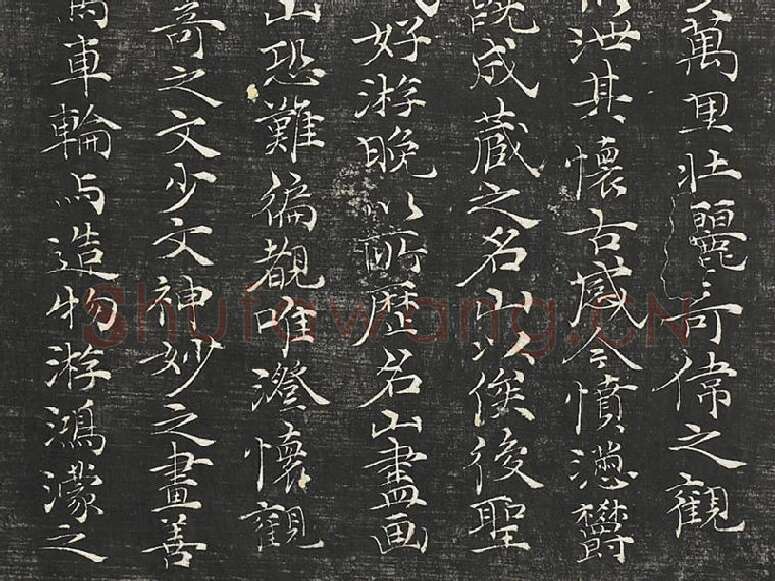 萬里壯麗奇偉之觀
泄其懷古感今憤懣鬱
既成藏之名山以俟後聖
好游晚以所歷名山畫画
山恐難徧覩唯澄懷觀
奇之文少文神妙之畫善
馬車輪与造物游鴻濛之
Shufawang.CN